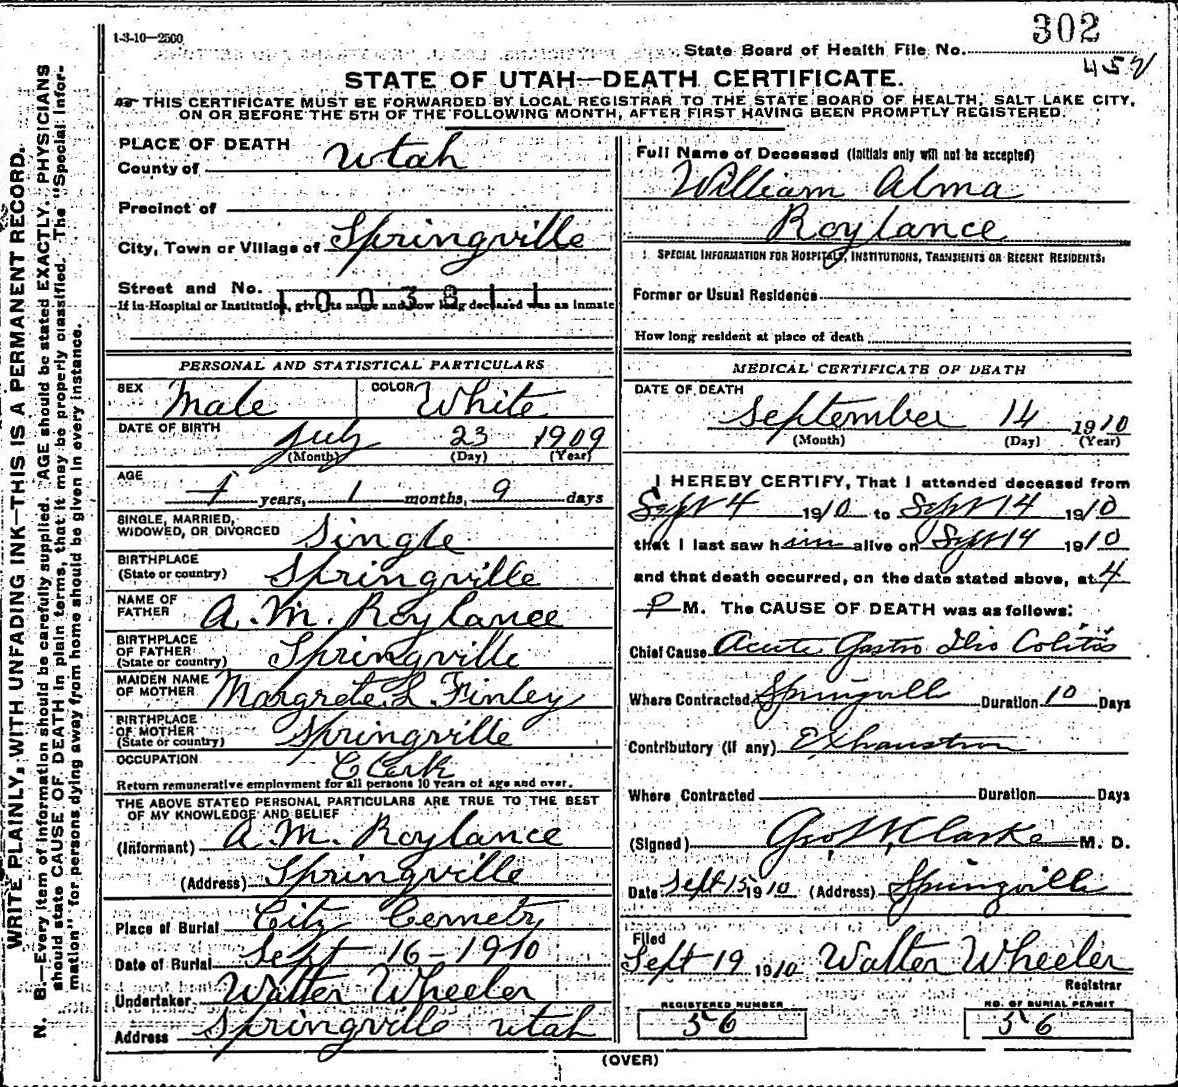 1-3-10—2500
302
State Board of Health File No.
452
STATE OF UTAH—DEATH CERTIFICATE.
THIS CERTIFICATE MUST BE FORWARDED BY LOCAL REGISTRAR TO THE STATE BOARD OF HEALTH, SALT LAKE CITY,
ON OR BEFORE THE 5TH OF THE FOLLOWING MONTH, AFTER FIRST HAVING BEEN PROMPTLY REGISTERED.
WRITE PLAINLY, WITH UNFADING INK—THIS IS A PERMANENT RECORD.
N. B.—Every item of information should be carefully supplied. AGE should be stated EXACTLY. PHYSICIANS
should state CAUSE OF DEATH in plain terms, that it may be properly classified. The "Special Infor-
mation" for persons dying away from home should be given in every instance.
PLACE OF DEATH
County of Utah
Precinct of
City, Town or Village of Springville
Street and No.
1003811
If in Hospital or Institution, give its name and how long deceased was an inmate
PERSONAL AND STATISTICAL PARTICULARS
SEX Male COLOR White
DATE OF BIRTH July 23 1909
(Month) (Day) (Year)
AGE
1 years, 1 months, 9 days
SINGLE, MARRIED,
WIDOWED, OR DIVORCED Single
BIRTHPLACE
(State or country) Springville
NAME OF
FATHER A. M. Roylance
BIRTHPLACE
OF FATHER
(State or country) Springville
MAIDEN NAME
OF MOTHER Margrete L. Finley
BIRTHPLACE
OF MOTHER
(State or country) Springville
OCCUPATION Clerk
Return remunerative employment for all persons 10 years of age and over.
THE ABOVE STATED PERSONAL PARTICULARS ARE TRUE TO THE BEST
OF MY KNOWLEDGE AND BELIEF
(Informant) A. M. Roylance
(Address) Springville
Place of Burial City Cemetry
Date of Burial Sept 16-1910
Undertaker Walter Wheeler
Address Springville Utah
Full Name of Deceased (Initials only will not be accepted)
William Alma
Roylance
SPECIAL INFORMATION FOR HOSPITALS, INSTITUTIONS, TRANSIENTS OR RECENT RESIDENTS:
Former or Usual Residence
How long resident at place of death
MEDICAL CERTIFICATE OF DEATH
DATE OF DEATH
September 14 1910
(Month) (Day) (Year)
I HEREBY CERTIFY, That I attended deceased from
Sept 4 1910 to Sept 14 1910
that I last saw him alive on Sept 14 1910
and that death occurred, on the date stated above, at 4
P M. The CAUSE OF DEATH was as follows:
Chief Cause Acute Gastro Ilio Colitis
Where Contracted Springville Duration 10 Days
Contributory (if any) Exhaustion
Where Contracted Duration Days
(Signed) Geo. W. Clarke M. D.
Date Sept 15 1910 (Address) Springville
Filed
Sept 19 1910 Walter Wheeler
Registrar
REGISTERED NUMBER NO. OF BURIAL PERMIT
56 56
(OVER)